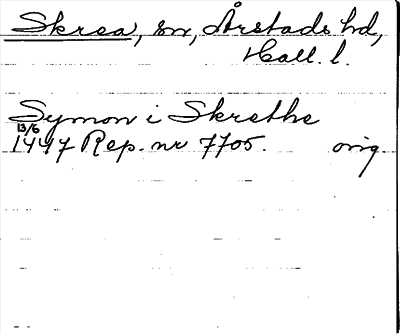 Skrea, sn, Årstads hd,
Hall. l.
Symon i Skrethe
13/6
1447 Rep. nr 7705. orig